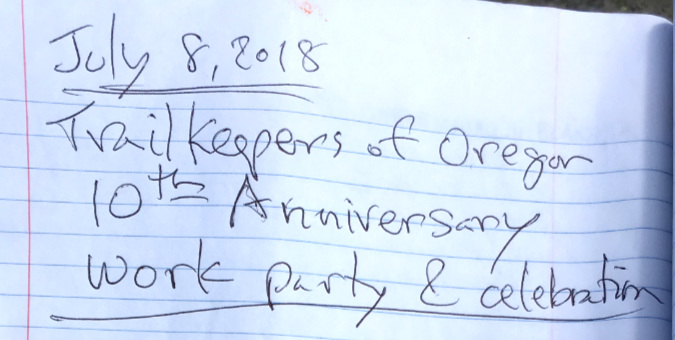 July 8, 2018
Trailkeepers of Oregon
10th Anniversary
work party & celebration